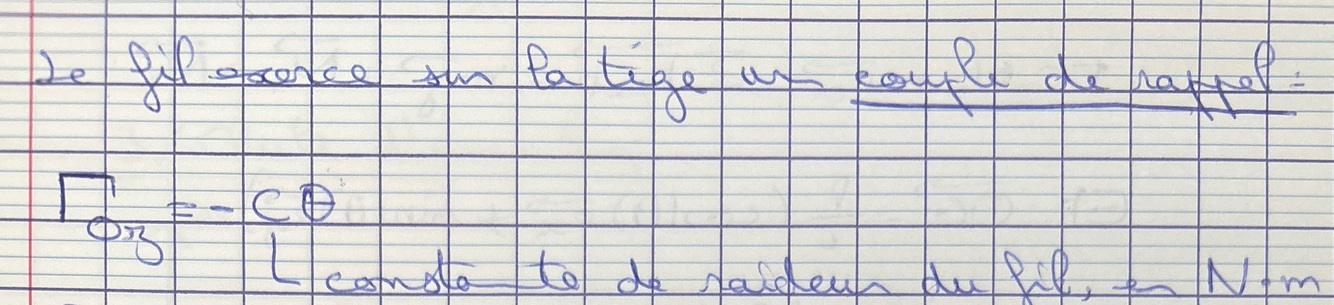 Le fil exerce sur la tige un couple de rappel :
Γ_Oz = - C θ
constante de raideur du fil, en N.m